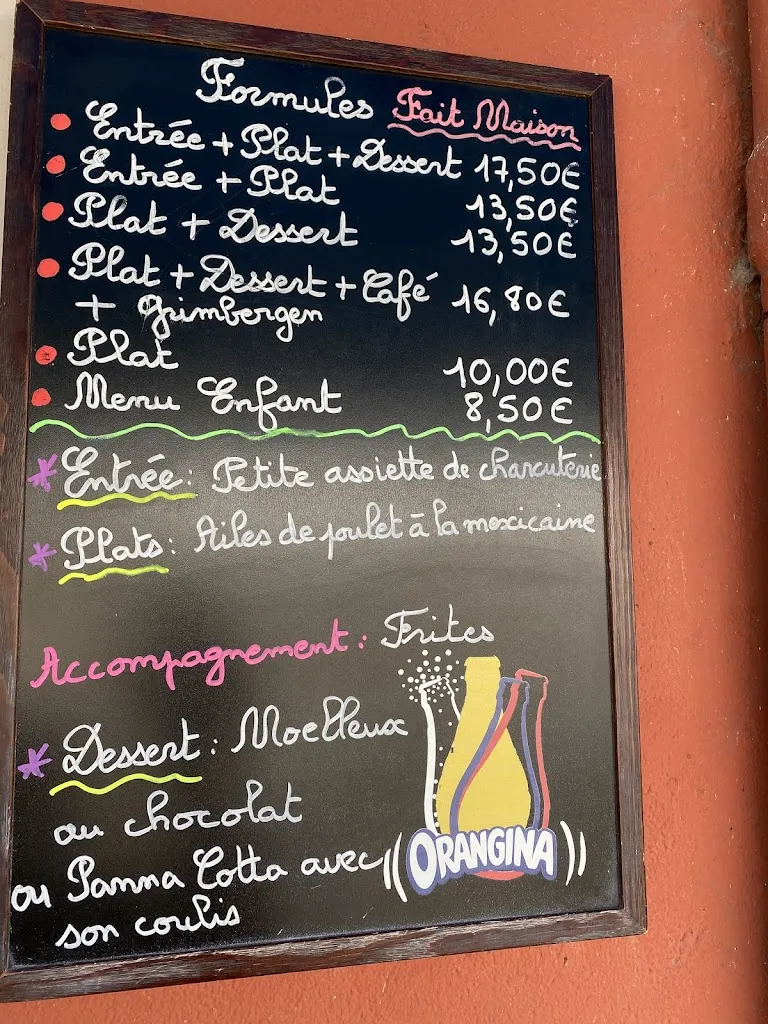 Formules Fait Maison
Entrée + Plat + Dessert 17,50€
Entrée + Plat 13,50€
Plat + Dessert 13,50€
Plat + Dessert + Café 16,80€
+ Grimbergen
Plat 10,00€
Menu Enfant 8,50€
* Entrée: Petite assiette de charcuterie
* Plats: Ailes de poulet à la mexicaine
Accompagnement: Frites
* Dessert: Moelleux
au chocolat
ou Panna Cotta avec
son coulis
ORANGINA